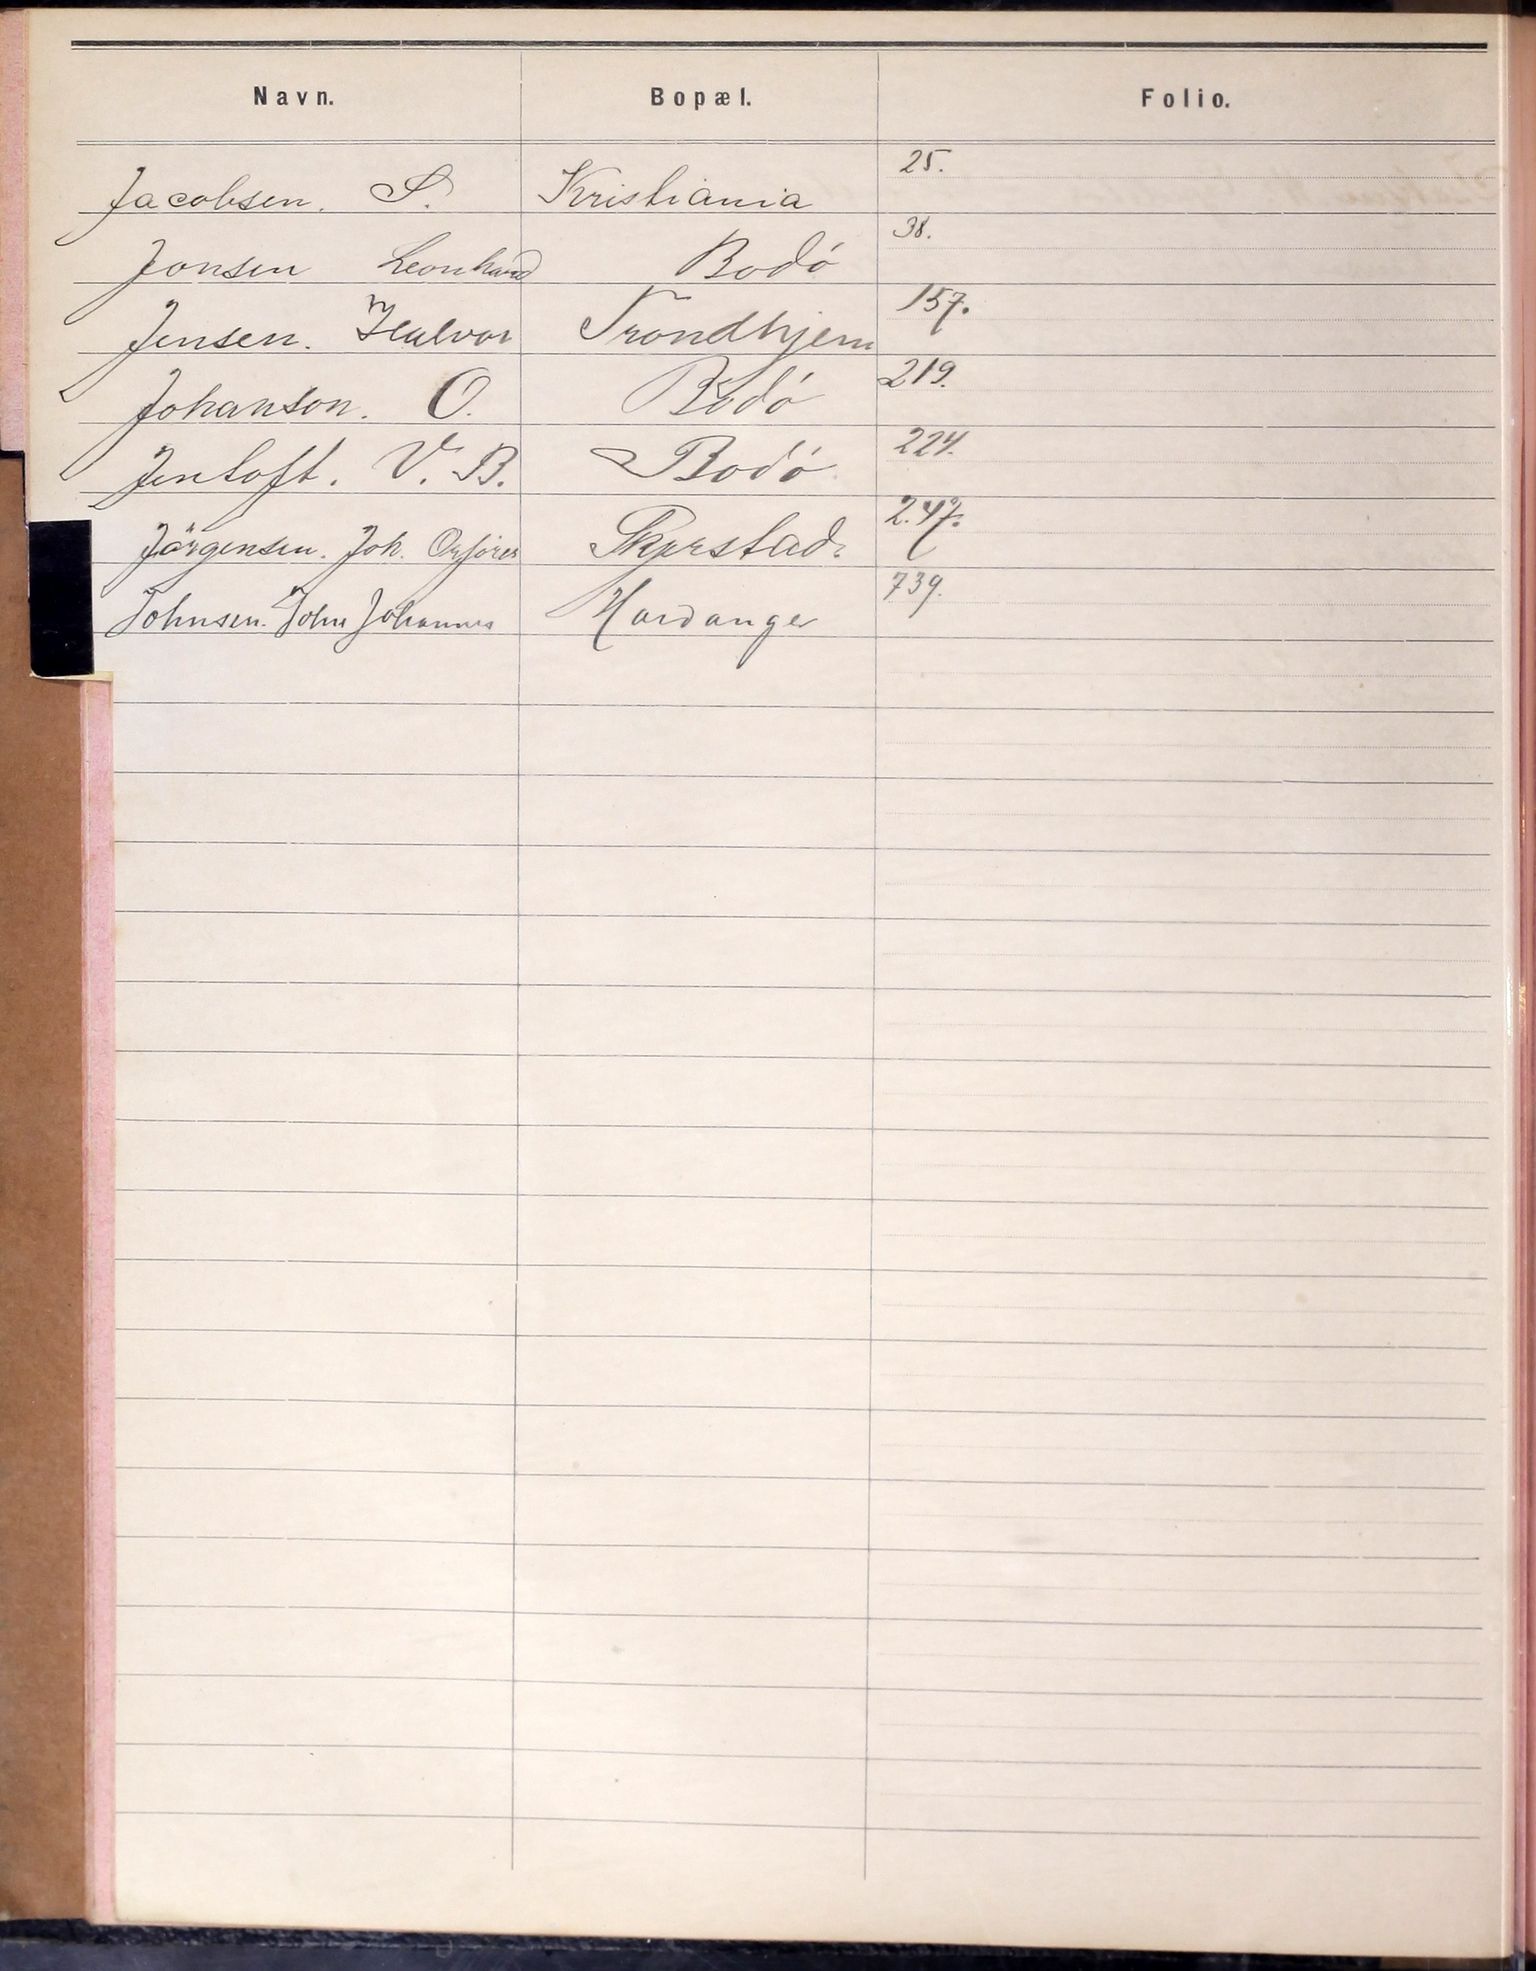 Navn. Bopæl. Folio.
Jacobsen. S. Kristiania 25.
Jonsen Leonhard Bodó 38.
Jensen. Halvor Trondhjem 157.
Johanson. O. Bodó 219.
Jentoft. V. B. Bodó 224.
Jörgensen. Joh. 247.
Johnsen. John Johannes Hardanger 739.